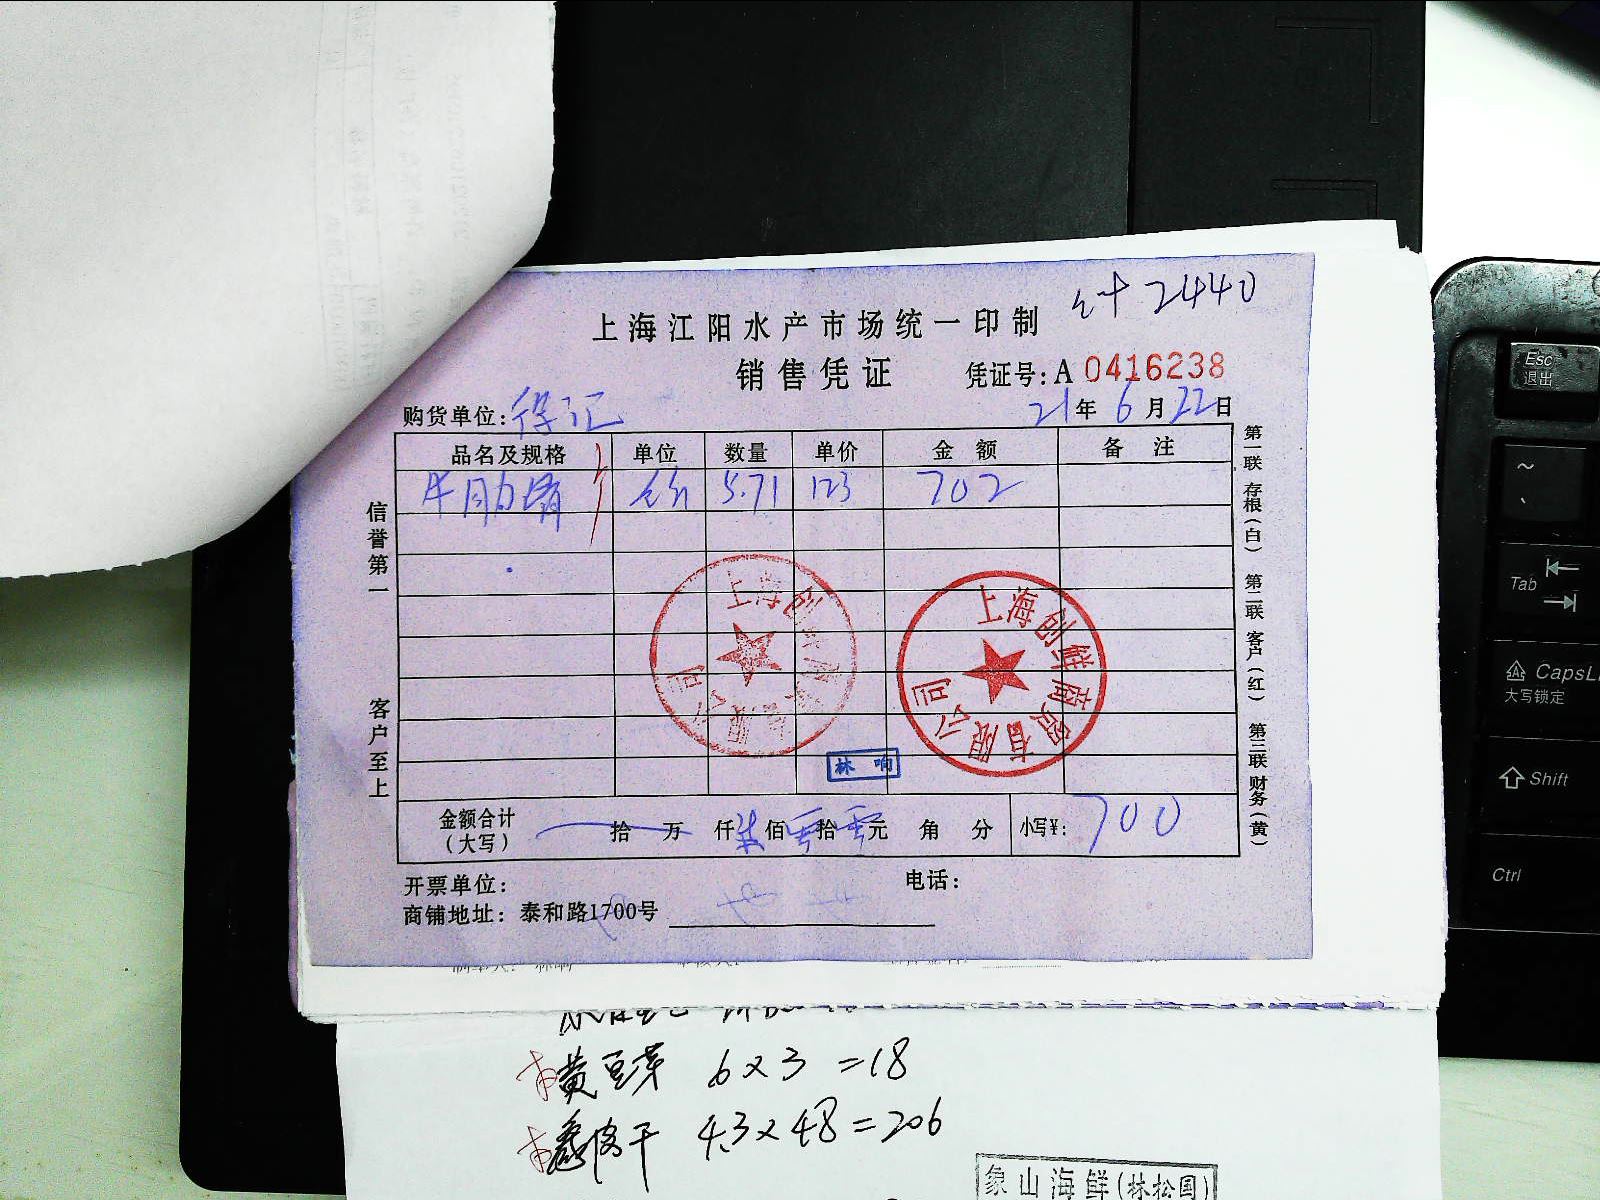 计 2440
上海江阳水产市场统一印制
销售凭证 凭证号: A 0416238
购货单位: 21年 6月22日
品名及规格 单位 数量 单价 金额 备注
牛肋 5.71 123 702
信誉第一
客户至上
第一联 存根(白) 第二联 客户(红) 第三联 财务(黄)
上海创鲜商贸有限公司
上海创鲜商贸有限公司
林 响
金额合计 (大写) 拾 万 仟 柒 佰 零 拾 零 元 角 分 小写¥: 700
开票单位: 电话:
商铺地址: 泰和路1700号
黄豆芽 6×3=18
4.3×48=206
象山海鲜(林松国)
Esc
退出
~
Tab
CapsL
大写锁定
Shift
Ctrl